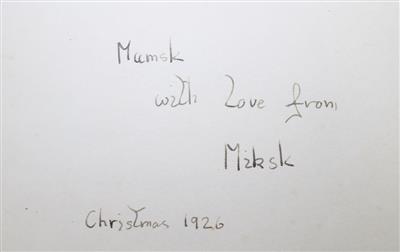 Mumsk
with love from
Miksk
Christmas 1926